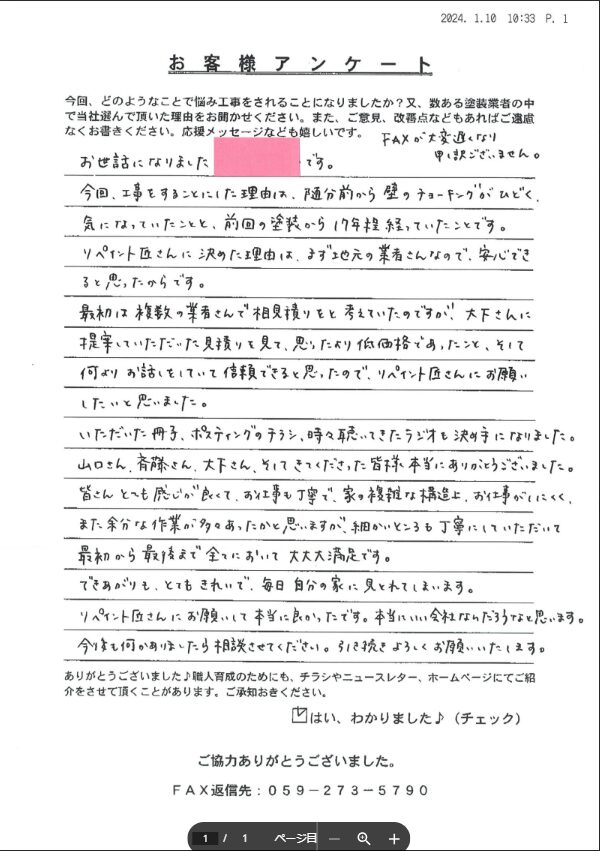 2024. 1.10 10:33 P. 1
お客様アンケート
今回、どのようなことで悩み工事をされることになりましたか？又、数ある塗装業者の中
で当社選んで頂いた理由をお聞かせください。また、ご意見、改善点などもあればご遠慮
なくお書きください。応援メッセージなども嬉しいです。
FAXが大変遅くなり
申し訳ございません。
お世話になりました
です。
今回、工事をすることにした理由は、随分前から壁のチョーキングがひどく、
気になっていたことと、前回の塗装から17年程経っていたことです。
リペイント匠さんに決めた理由は、まず地元の業者さんなので、安心でき
ると思ったからです。
最初は複数の業者さんで相見積りをと考えていたのですが、大下さんに
提案していただいた見積りを見て、思ったより低価格であったこと、そして
何よりお話しをしていて信頼できると思ったので、リペイント匠さんにお願い
したいと思いました。
いただいた冊子、ポスティングのチラシ、時々聴いてきたラジオも決め手になりました。
山口さん、斉藤さん、大下さん、そしてきてくださった皆様、本当にありがとうございました。
皆さんとても感じが良くて、お仕事も丁寧で、家の複雑な構造上、お仕事がしにくく、
また余分な作業が多々あったかと思いますが、細かいところも丁寧にしていただいて
最初から最後まで全てにおいて大大大満足です。
できあがりも、とてもきれいで、毎日自分の家に見とれてしまいます。
リペイント匠さんにお願いして本当に良かったです。本当にいい会社なんだろうなと思います。
今後も何かありましたら相談させてください。引き続きよろしくお願いいたします。
ありがとうございました♪職人育成のためにも、チラシやニュースレター、ホームページにてご紹
介をさせて頂くことがあります。ご承知おきください。
はい、わかりました♪（チェック）
ご協力ありがとうございました。
FAX返信先：059－273－5790
1 / 1 ページ目